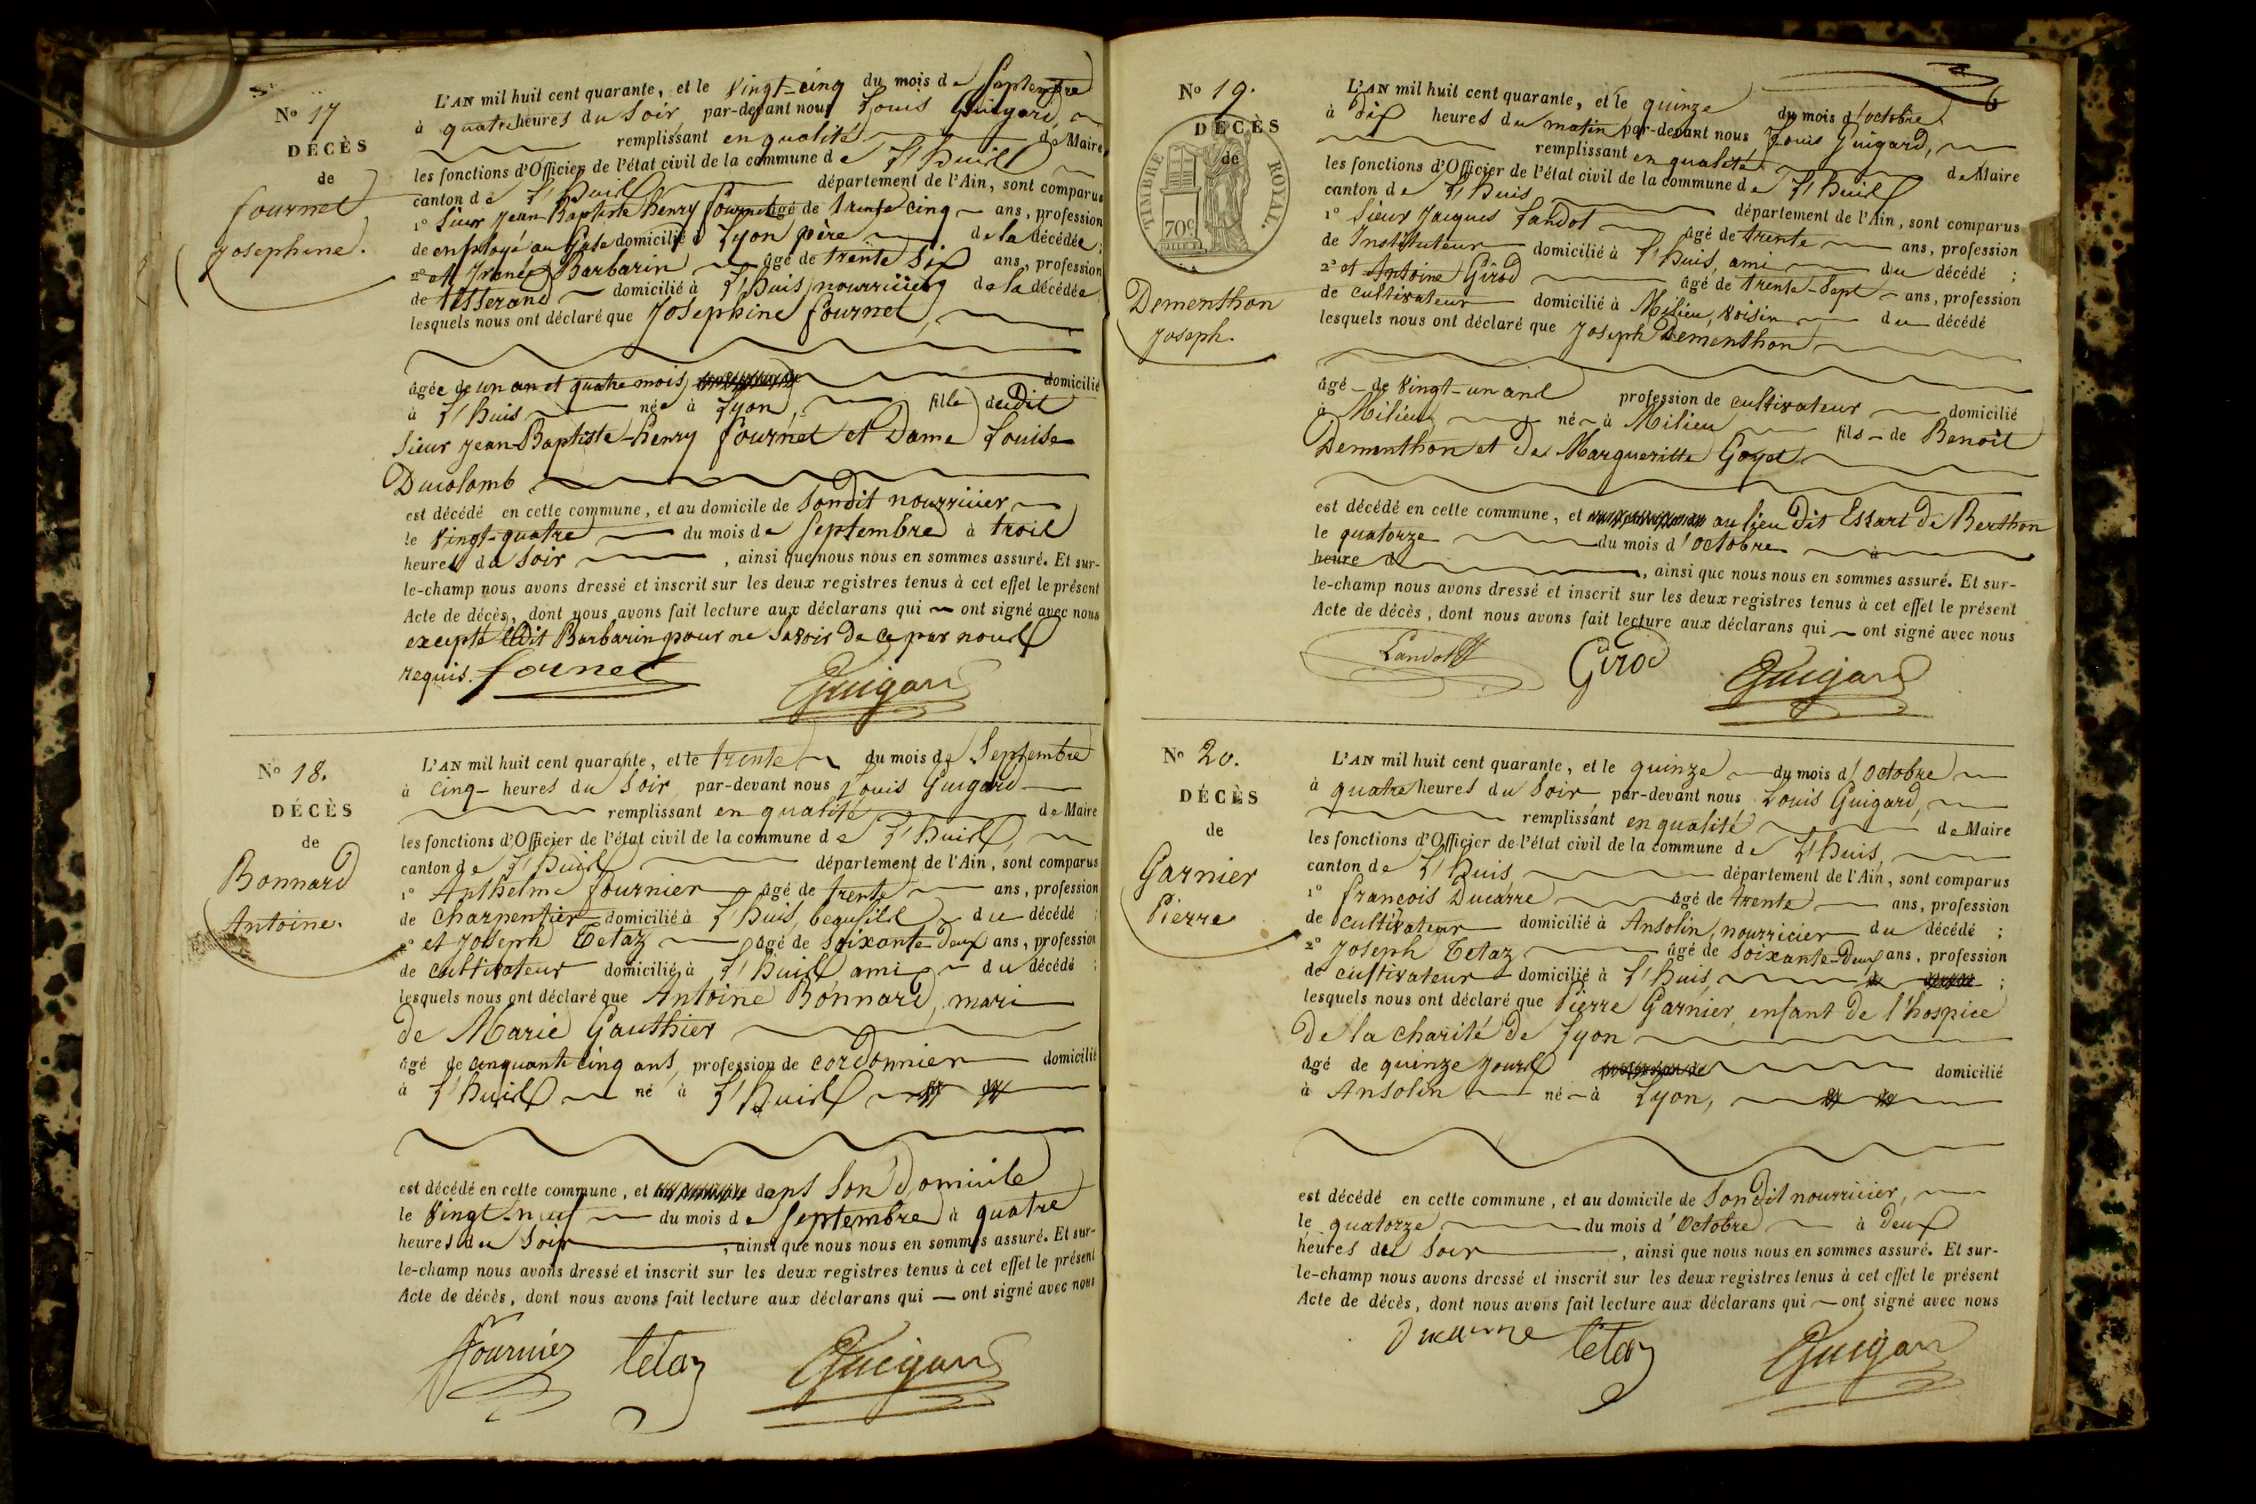 No 17
DÉCÈS
de
fournet
josephine.
L'AN mil huit cent quarante, et le vingt-cinq du mois de Septembre
à quatre heures du soir, par-devant nous Louis Guigard,
remplissant en qualité de Maire
les fonctions d'Officier de l'état civil de la commune de L'huis
canton de L'huis département de l'Ain, sont comparus
1o Sieur jean-Baptiste henry fournet âgé de trente cinq ans, profession
de employé au domicilié à Lyon père de la décédée;
2o et Barbarin âgé de trente six ans, profession
de tisserand domicilié à L'huis, nourricier de la décédée,
lesquels nous ont déclaré que josephine fournet,
âgée de un an et quatre mois, domicilié
à L'huis née à Lyon, fille dudit
Sieur jean-Baptiste-henry fournet et Dame Louise
Ducolomb
est décédé en cette commune, et au domicile de son dit nourricier
le vingt-quatre du mois de septembre à trois
heures du soir, ainsi que nous nous en sommes assuré. Et sur-
le-champ nous avons dressé et inscrit sur les deux registres tenus à cet effet le présent
Acte de décès, dont nous avons fait lecture aux déclarans qui ont signé avec nous
excepté ledit Barbarin pour ne savoir de ce par nous
requis. fornet Guigard
No 18.
DÉCÈS
de
Bonnard
Antoine.
L'AN mil huit cent quarante, et le trente du mois de Septembre
à cinq heures du soir, par-devant nous Louis Guigard
remplissant en qualité de Maire
les fonctions d'Officier de l'état civil de la commune de L'huis,
canton de L'huis département de l'Ain, sont comparus
1o Anthelme fournier âgé de trente ans, profession
de charpentier domicilié à L'huis, beaufils du décédé;
2o et joseph Tetaz âgé de soixante-deux ans, profession
de cultivateur domicilié à L'huis ami du décédé;
lesquels nous ont déclaré que Antoine Bonnard, mari
de Marie Gauthier
âgé de cinquante cinq ans, profession de cordonnier domicilié
à L'huis né à L'huis
est décédé en cette commune, et dans son domicile
le vingt-neuf du mois de septembre à quatre
heures du soir, ainsi que nous nous en sommes assuré. Et sur-
le-champ nous avons dressé et inscrit sur les deux registres tenus à cet effet le présent
Acte de décès, dont nous avons fait lecture aux déclarans qui ont signé avec nous
fournier tetaz Guigard
6
No 19.
DÉCÈS
de
TIMBRE ROYAL.
70c
Dementhon
joseph.
L'AN mil huit cent quarante, et le quinze du mois d'octobre
à dix heures du matin par-devant nous Louis Guigard,
remplissant en qualité de Maire
les fonctions d'Officier de l'état civil de la commune de L'huis
canton de L'huis département de l'Ain, sont comparus
1o Sieur jacques Landot âgé de trente ans, profession
de Instituteur domicilié à L'huis, ami du décédé;
2o et Antoine Girod âgé de trente-sept ans, profession
de cultivateur domicilié à Milieu, voisin du décédé
lesquels nous ont déclaré que joseph Dementhon
âgé de vingt-un ans profession de cultivateur domicilié
à Milieu né à Milieu fils de Benoit
Dementhon et de Margueritte Goyet
est décédé en cette commune, et au lieu dit Essart de Berthon
le quatorze du mois d'octobre à
heure d, ainsi que nous nous en sommes assuré. Et sur-
le-champ nous avons dressé et inscrit sur les deux registres tenus à cet effet le présent
Acte de décès, dont nous avons fait lecture aux déclarans qui ont signé avec nous
Landot Girod Guigard
No 20.
DÉCÈS
de
Garnier
Pierre
L'AN mil huit cent quarante, et le quinze du mois d'octobre
à quatre heures du soir par-devant nous Louis Guigard,
remplissant en qualité de Maire
les fonctions d'Officier de l'état civil de la commune de L'huis,
canton de L'huis département de l'Ain, sont comparus
1o françois Ducarre âgé de trente ans, profession
de cultivateur domicilié à Ansolin, nourricier du décédé;
2o joseph Tetaz âgé de soixante-deux ans, profession
de cultivateur domicilié à L'huis,;
lesquels nous ont déclaré que Pierre Garnier, enfant de l'hospice
de la charité de Lyon
âgé de quinze jours domicilié
à Ansolin né à Lyon,
est décédé en cette commune, et au domicile de son dit nourricier,
le quatorze du mois d'octobre à deux
heures du soir, ainsi que nous nous en sommes assuré. Et sur-
le-champ nous avons dressé et inscrit sur les deux registres tenus à cet effet le présent
Acte de décès, dont nous avons fait lecture aux déclarans qui ont signé avec nous
Ducarre tetaz Guigard